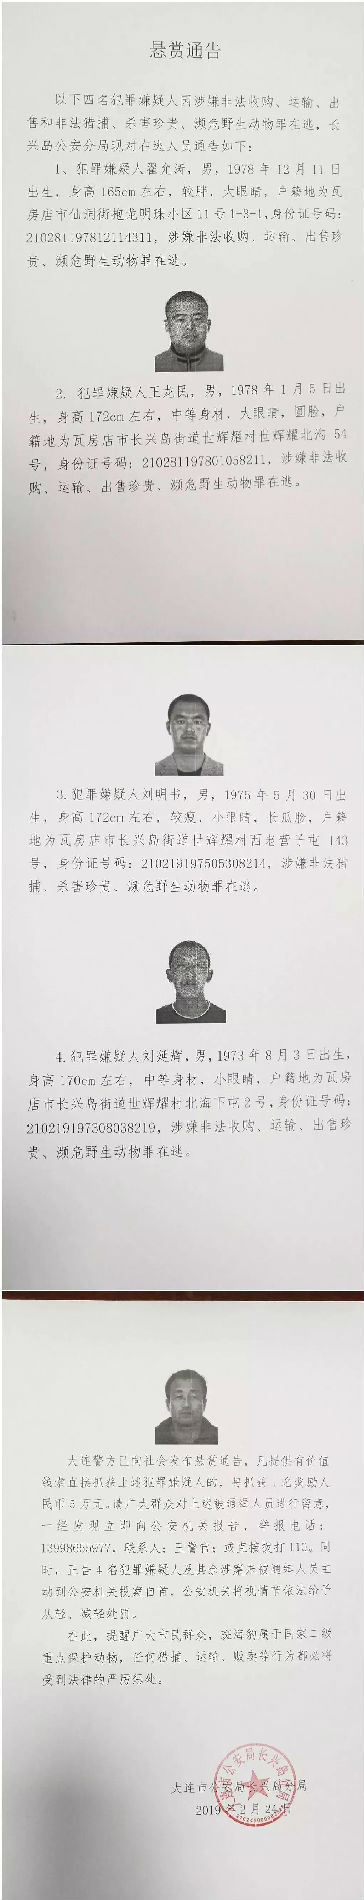 悬赏通告
以下四名犯罪嫌疑人因涉嫌非法收购、运输、出
售和非法猎捕、杀害珍贵、濒危野生动物罪在逃，长
兴岛公安分局现对在逃人员通告如下：
1、犯罪嫌疑人翟允涛，男，1978年12月11日
出生，身高165cm左右，较胖，大眼睛，户籍地为瓦
房店市仙洞街抱龙明珠小区11号1-3-1，身份证号码：
210281197812114311，涉嫌非法收购、运输、出售珍
贵、濒危野生动物罪在逃。
2、犯罪嫌疑人王龙民，男，1978年1月5日出
生，身高172cm左右，中等身材，大眼睛，圆脸，户
籍地为瓦房店市长兴岛街道世辉耀村世辉耀北沟54
号，身份证号码：210281197801058211，涉嫌非法收
购、运输、出售珍贵、濒危野生动物罪在逃。
3.犯罪嫌疑人刘明书，男，1975年5月30日出
生，身高172cm左右，较瘦，小眼睛，长瓜脸，户籍
地为瓦房店市长兴岛街道世辉耀村西老营子屯143
号，身份证号码：210219197505308214，涉嫌非法猎
捕、杀害珍贵、濒危野生动物罪在逃。
4.犯罪嫌疑人刘延辉，男，1973年8月3日出生，
身高170cm左右，中等身材，小眼睛，户籍地为瓦房
店市长兴岛街道世辉耀村北海下屯2号，身份证号码：
210219197308038219，涉嫌非法收购、运输、出售珍
贵、濒危野生动物罪在逃。
大连警方已向社会发布悬赏通告，凡提供有价值
线索直接抓获上述犯罪嫌疑人的，每抓获一名奖励人
民币5万元。请广大群众对上述被通缉人员进行留意，
一经发现立即向公安机关报告，举报电话：
联系人：王警官；或直接拨打110。同
时，正告4名犯罪嫌疑人及其他涉嫌未被通缉人员主
动到公安机关投案自首，公安机关将视情节依法给予
从轻、减轻处罚。
在此，提醒广大市民群众，斑海豹属于国家二级
重点保护动物，任何猎捕、运输、贩卖等行为都必将
受到法律的严厉惩处。
大连市公安局长兴岛分局
2019年2月24日